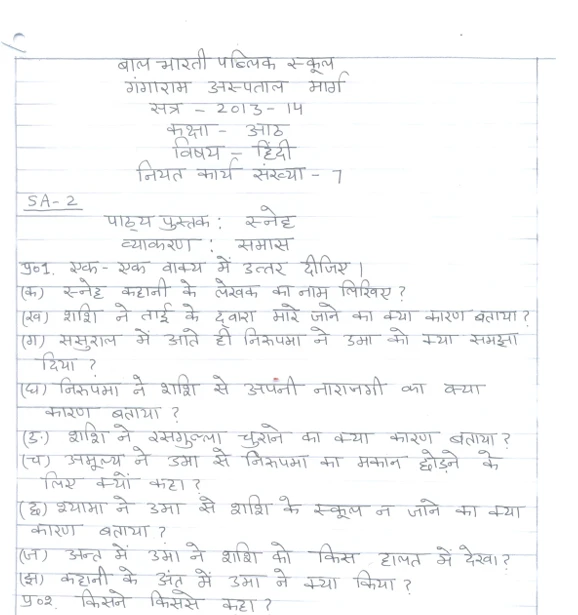 बाल भारती पब्लिक स्कूल
गंगाराम अस्पताल मार्ग
सत्र - 2013-14
कक्षा - आठ
विषय - हिंदी
नियत कार्य संख्या - 7
SA-2
पाठ्य पुस्तक : स्नेह
व्याकरण : समास
प्र०1. एक-एक वाक्य में उत्तर दीजिए।
(क) स्नेह कहानी के लेखक का नाम लिखिए?
(ख) शशि ने ताई के द्वारा मारे जाने का क्या कारण बताया?
(ग) ससुराल में आते ही निरुपमा ने उमा को क्या समझा
दिया?
(घ) निरुपमा ने शशि से अपनी नाराजगी का क्या
कारण बताया?
(ङ) शशि ने रसगुल्ला चुराने का क्या कारण बताया?
(च) अमूल्य ने उमा से निरुपमा का मकान छोड़ने के
लिए क्यों कहा?
(छ) श्यामा ने उमा से शशि के स्कूल न जाने का क्या
कारण बताया?
(ज) अन्त में उमा ने शशि को किस हालत में देखा?
(झ) कहानी के अंत में उमा ने क्या किया?
प्र०2. किसने किससे कहा?